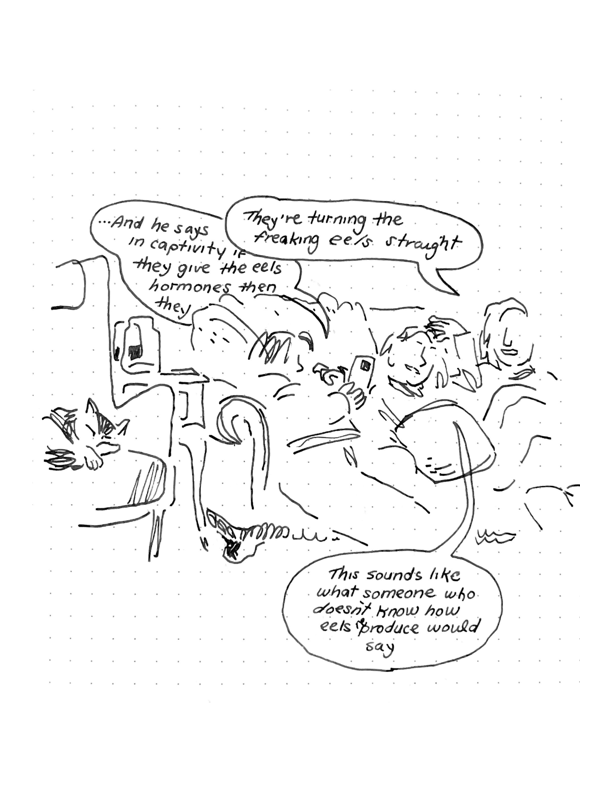 ...And he says
in captivity if
they give the eels
hormones then
they
They're turning the
freaking eels straight
This sounds like
what someone who
doesn't know how
eels reproduce would
say